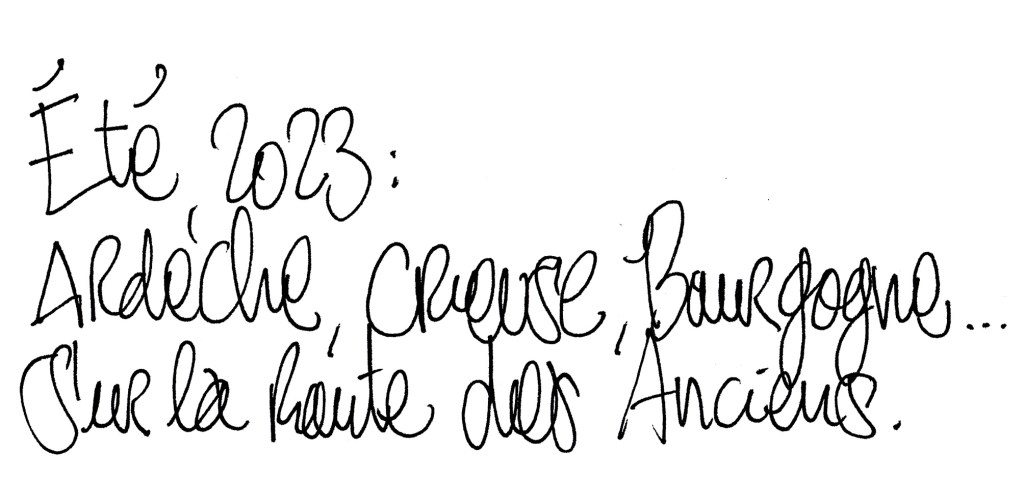 Été 2023:
Ardèche, Creuse, Bourgogne...
Sur la Route des Anciens.